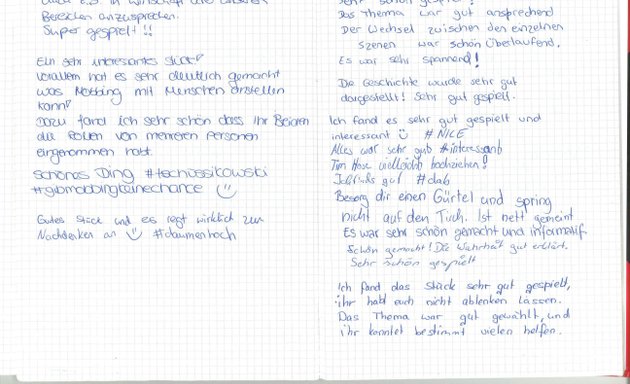 auch z.B in Wirtschaft und anderen
Bereichen anzusprechen.
Super gespielt !!
Ein sehr interessantes Stück!
Vorallem hat es sehr deutlich gemacht
was Mobbing mit Menschen anstellen
kann!
Dazu fand ich sehr schön dass Ihr Beiden
die Rollen von mehreren Personen
eingenommen habt.
Schönes Ding #tschüssikowski
#gibmobbingkeinechance
Gutes Stück und es regt wirklich zum
Nachdenken an #daumenhoch
Sehr schön gespielt !
Das Thema war gut ansprechend
Der Wechsel zwischen den einzelnen
Szenen war schön überlaufend.
Es war sehr spannend!
Die Geschichte wurde sehr gut
dargestellt! Sehr gut gespielt.
Ich fand es sehr gut gespielt und
interessant #NICE
Alles war sehr gut #interessant
Tim Hose vielleicht hochziehen!
gut #dab
Besorg dir einen Gürtel und spring
nicht auf den Tisch. Ist nett gemeint
Es war sehr schön gemacht und informativ.
Schön gemacht! Die Wahrheit gut erklärt.
Sehr schön gespielt
Ich fand das Stück sehr gut gespielt,
ihr habt euch nicht ablenken lassen.
Das Thema war gut gewählt, und
ihr konntet bestimmt vielen helfen.